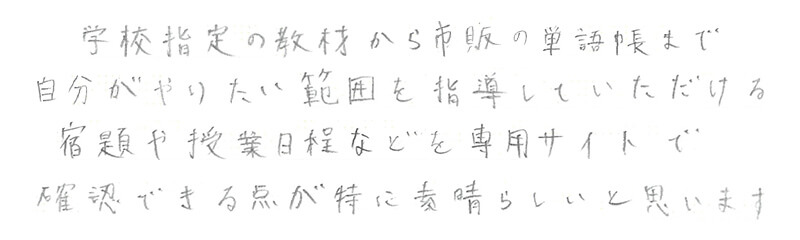 学校指定の教材から市販の単語帳まで
自分がやりたい範囲を指導していただける
宿題や授業日程などを専用サイトで
確認できる点が特に素晴らしいと思います